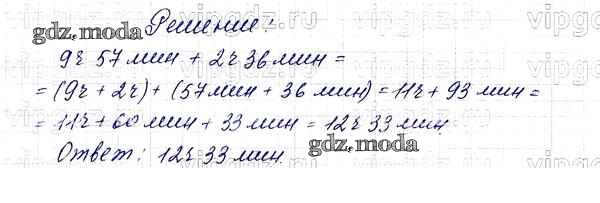 Решение:
gdz.moda
9ч 57 мин + 2ч 36 мин =
= (9ч + 2ч) + (57 мин + 36 мин) = 11ч + 93 мин =
= 11ч + 60 мин + 33 мин = 12ч 33 мин.
gdz.moda
Ответ: 12ч 33 мин.